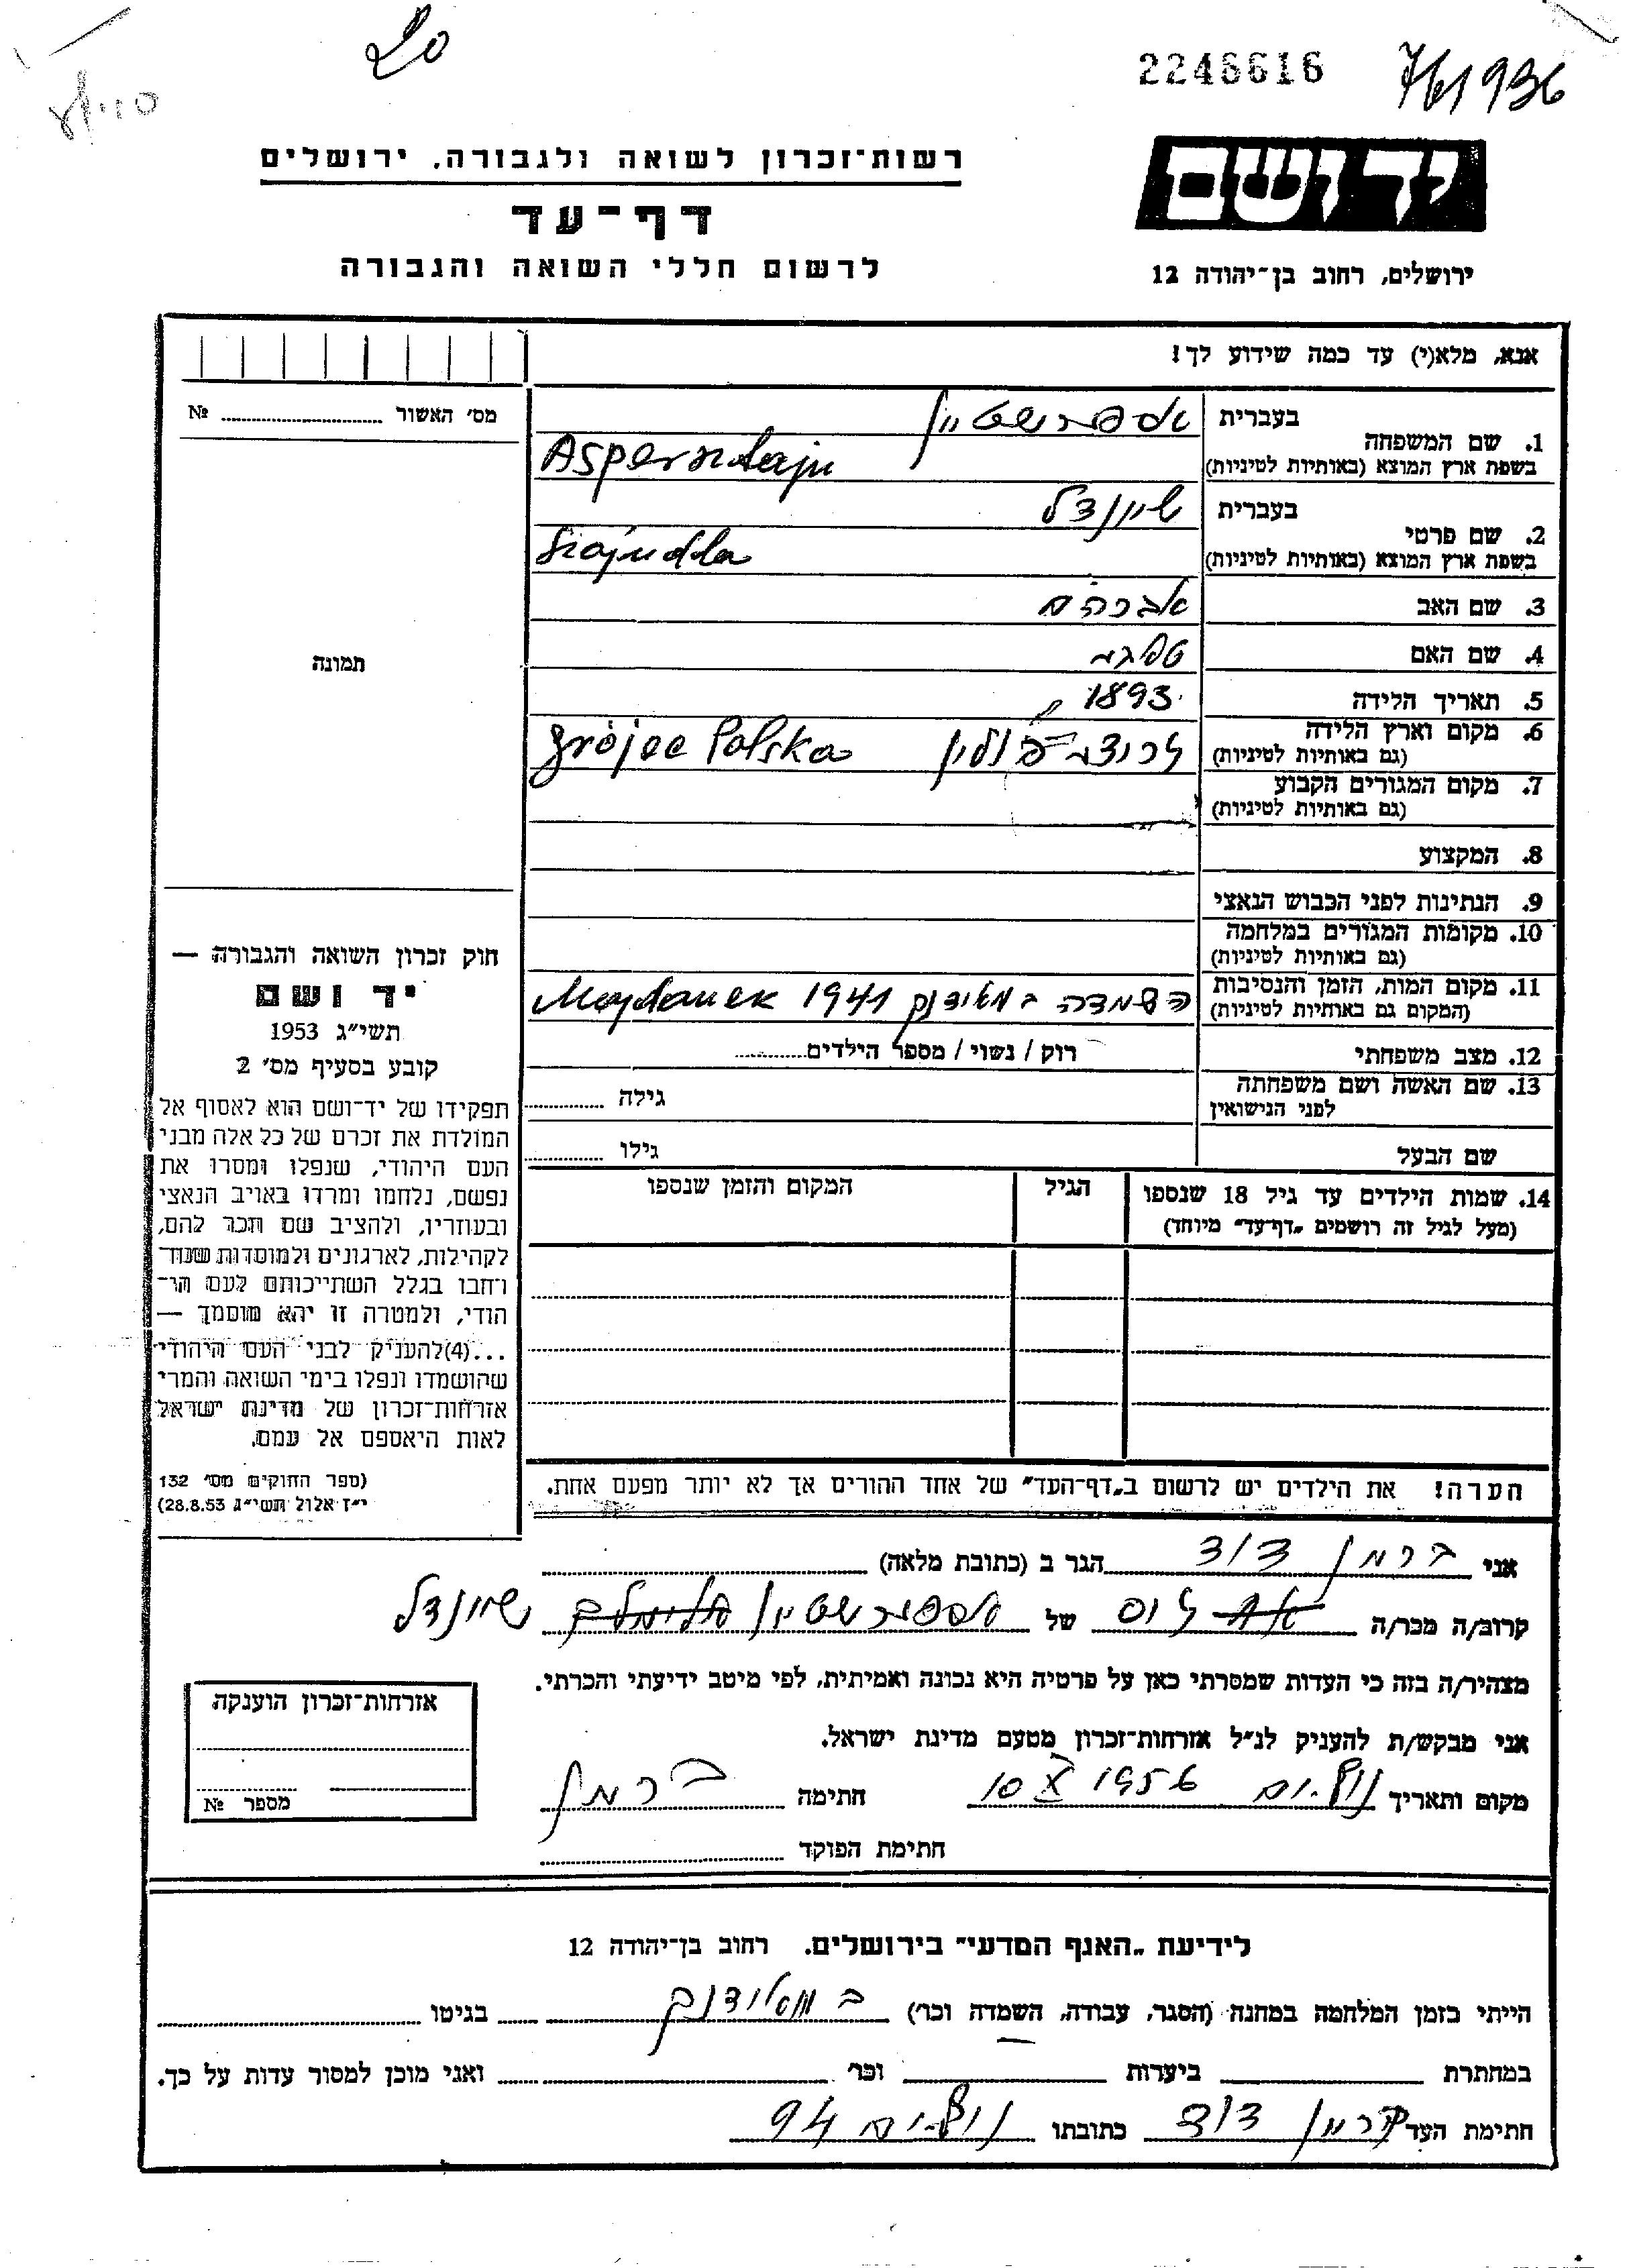 20
2246616
761936
רשות־זכרון לשואה ולגבורה. ירושלים
יד ושם
דף־עד
לרשום חללי השואה והגבורה
ירושלים, רחוב בן־יהודה 12
אנא, מלא(י) עד כמה שידוע לך!
מס׳ האשור ............ №
1. שם המשפחה
בעברית אספרשטיין
בשפת ארץ המוצא (באותיות לטיניות) Aspersztajn
2. שם פרטי
בעברית שיינדל
בשפת ארץ המוצא (באותיות לטיניות) Szajndla
3. שם האב אברהם
4. שם האם
תמונה
5. תאריך הלידה 1893
6. מקום וארץ הלידה
(גם באותיות לטיניות) פולין Grójec Polska
7. מקום המגורים הקבוע
(גם באותיות לטיניות)
8. המקצוע
9. הנתינות לפני הכבוש הנאצי
10. מקומות המגורים במלחמה
(גם באותיות לטיניות)
11. מקום המות, הזמן והנסיבות
(המקום גם באותיות לטיניות) השמדה במאידנק 1941 Majdanek
12. מצב משפחתי רוק / נשוי / מספר הילדים............
13. שם האשה ושם משפחתה
לפני הנישואין גילה ............
שם הבעל גילו ............
14. שמות הילדים עד גיל 18 שנספו
(מעל לגיל זה רושמים „דף־עד״ מיוחד)
הגיל
המקום והזמן שנספו
הערה! את הילדים יש לרשום ב„דף־העד״ של אחד ההורים אך לא יותר מפעם אחת.
חוק זכרון השואה והגבורה —
יד ושם
תשי״ג 1953
קובע בסעיף מס׳ 2
תפקידו של יד־ושם הוא לאסוף אל
המולדת את זכרם של כל אלה מבני
העם היהודי, שנפלו ומסרו את
נפשם, נלחמו ומרדו באויב הנאצי
ובעוזריו, ולהציב שם וזכר להם,
לקהילות, לארגונים ולמוסדות שנח־
רחבו בגלל השתייכותם לעם הי־
הודי, ולמטרה זו יהא מוסמך —
...(4)להעניק לבני העם היהודי
שהושמדו ונפלו בימי השואה והמרי
אזרחות־זכרון של מדינת ישראל
לאות היאספם אל עמם.
(ספר החוקים מס׳ 132
י״ז אלול תשי״ג 28.8.53)
אני ברמן דוד הגר ב (כתובת מלאה)
קרוב/ה מכר/ה גיס של אספרשטיין שיינדל
מצהיר/ה בזה כי העדות שמסרתי כאן על פרטיה היא נכונה ואמיתית, לפי מיטב ידיעתי והכרתי.
אני מבקש/ת להעניק לנ״ל אזרחות־זכרון מטעם מדינת ישראל.
מקום ותאריך 10 X 1956 חתימה ברמן
חתימת הפוקד
אזרחות־זכרון הוענקה
מספר №
לידיעת „האגף המדעי״ בירושלים. רחוב בן־יהודה 12
הייתי בזמן המלחמה במחנה (הסגר, עבודה, השמדה וכו׳) במאידנק בגיטו
במחתרת ביערות וכו׳ ואני מוכן למסור עדות על כך.
חתימת העד ברמן דוד כתובתו 94